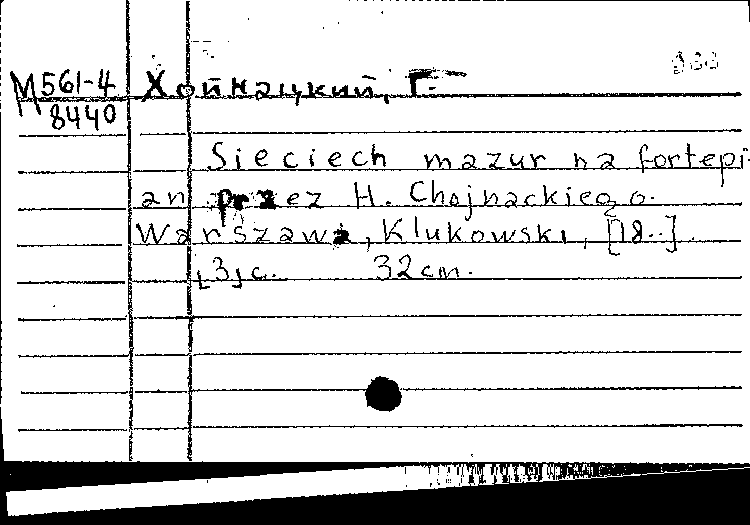 М561-4 Хойнацкий, Г.
8440
Sieciech mazur na fortepi-
an przez H. Chojnackiego.
Warszawa, Klukowski, [18..].
[3] c. 32 cm.